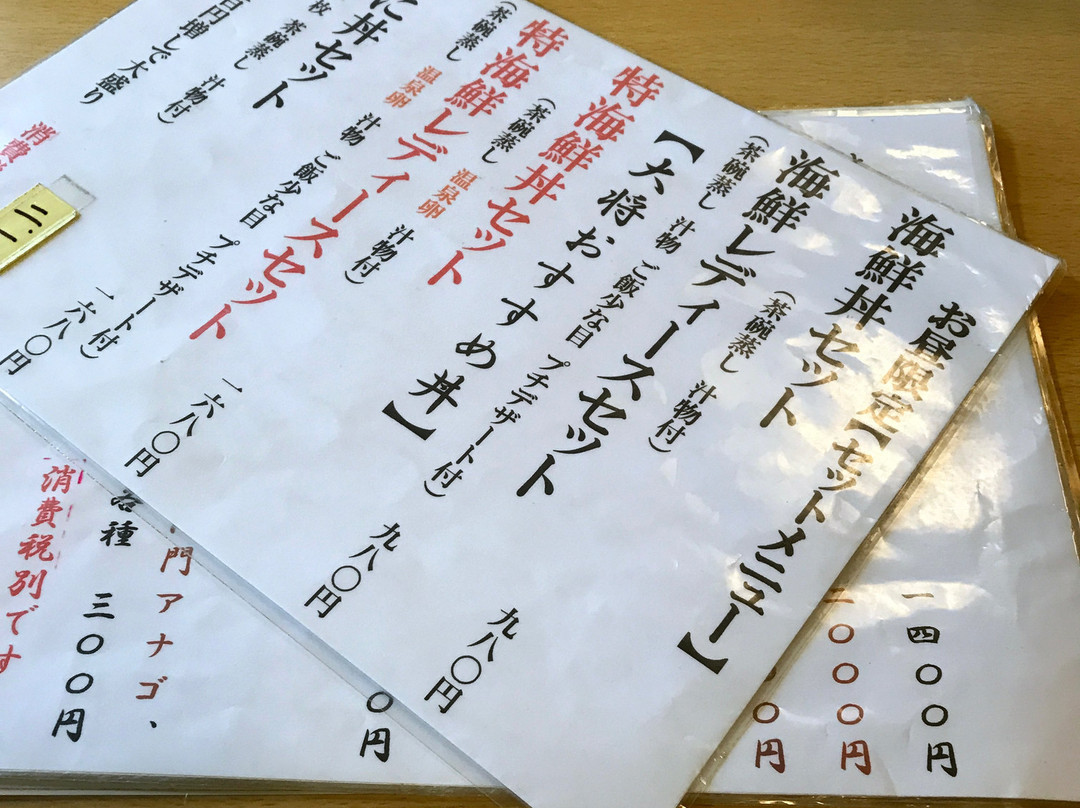 お昼限定【セットメニュー】
海鮮丼セット
(茶碗蒸し 汁物付)
九八〇円
海鮮レディースセット
(茶碗蒸し 汁物 ご飯少な目 プチデザート付)
九八〇円
【大将おすすめ丼】
特海鮮丼セット
(茶碗蒸し 温泉卵 汁物付)
一六八〇円
特海鮮レディースセット
(茶碗蒸し 温泉卵 汁物 ご飯少な目 プチデザート付)
一六八〇円
に丼セット
枚 茶碗蒸し 汁物付)
円増しで大盛り
消費
二.一
一四〇〇円
一〇〇〇円
〇円
〇円
門アナゴ、
各種 三〇〇円
消費税別です